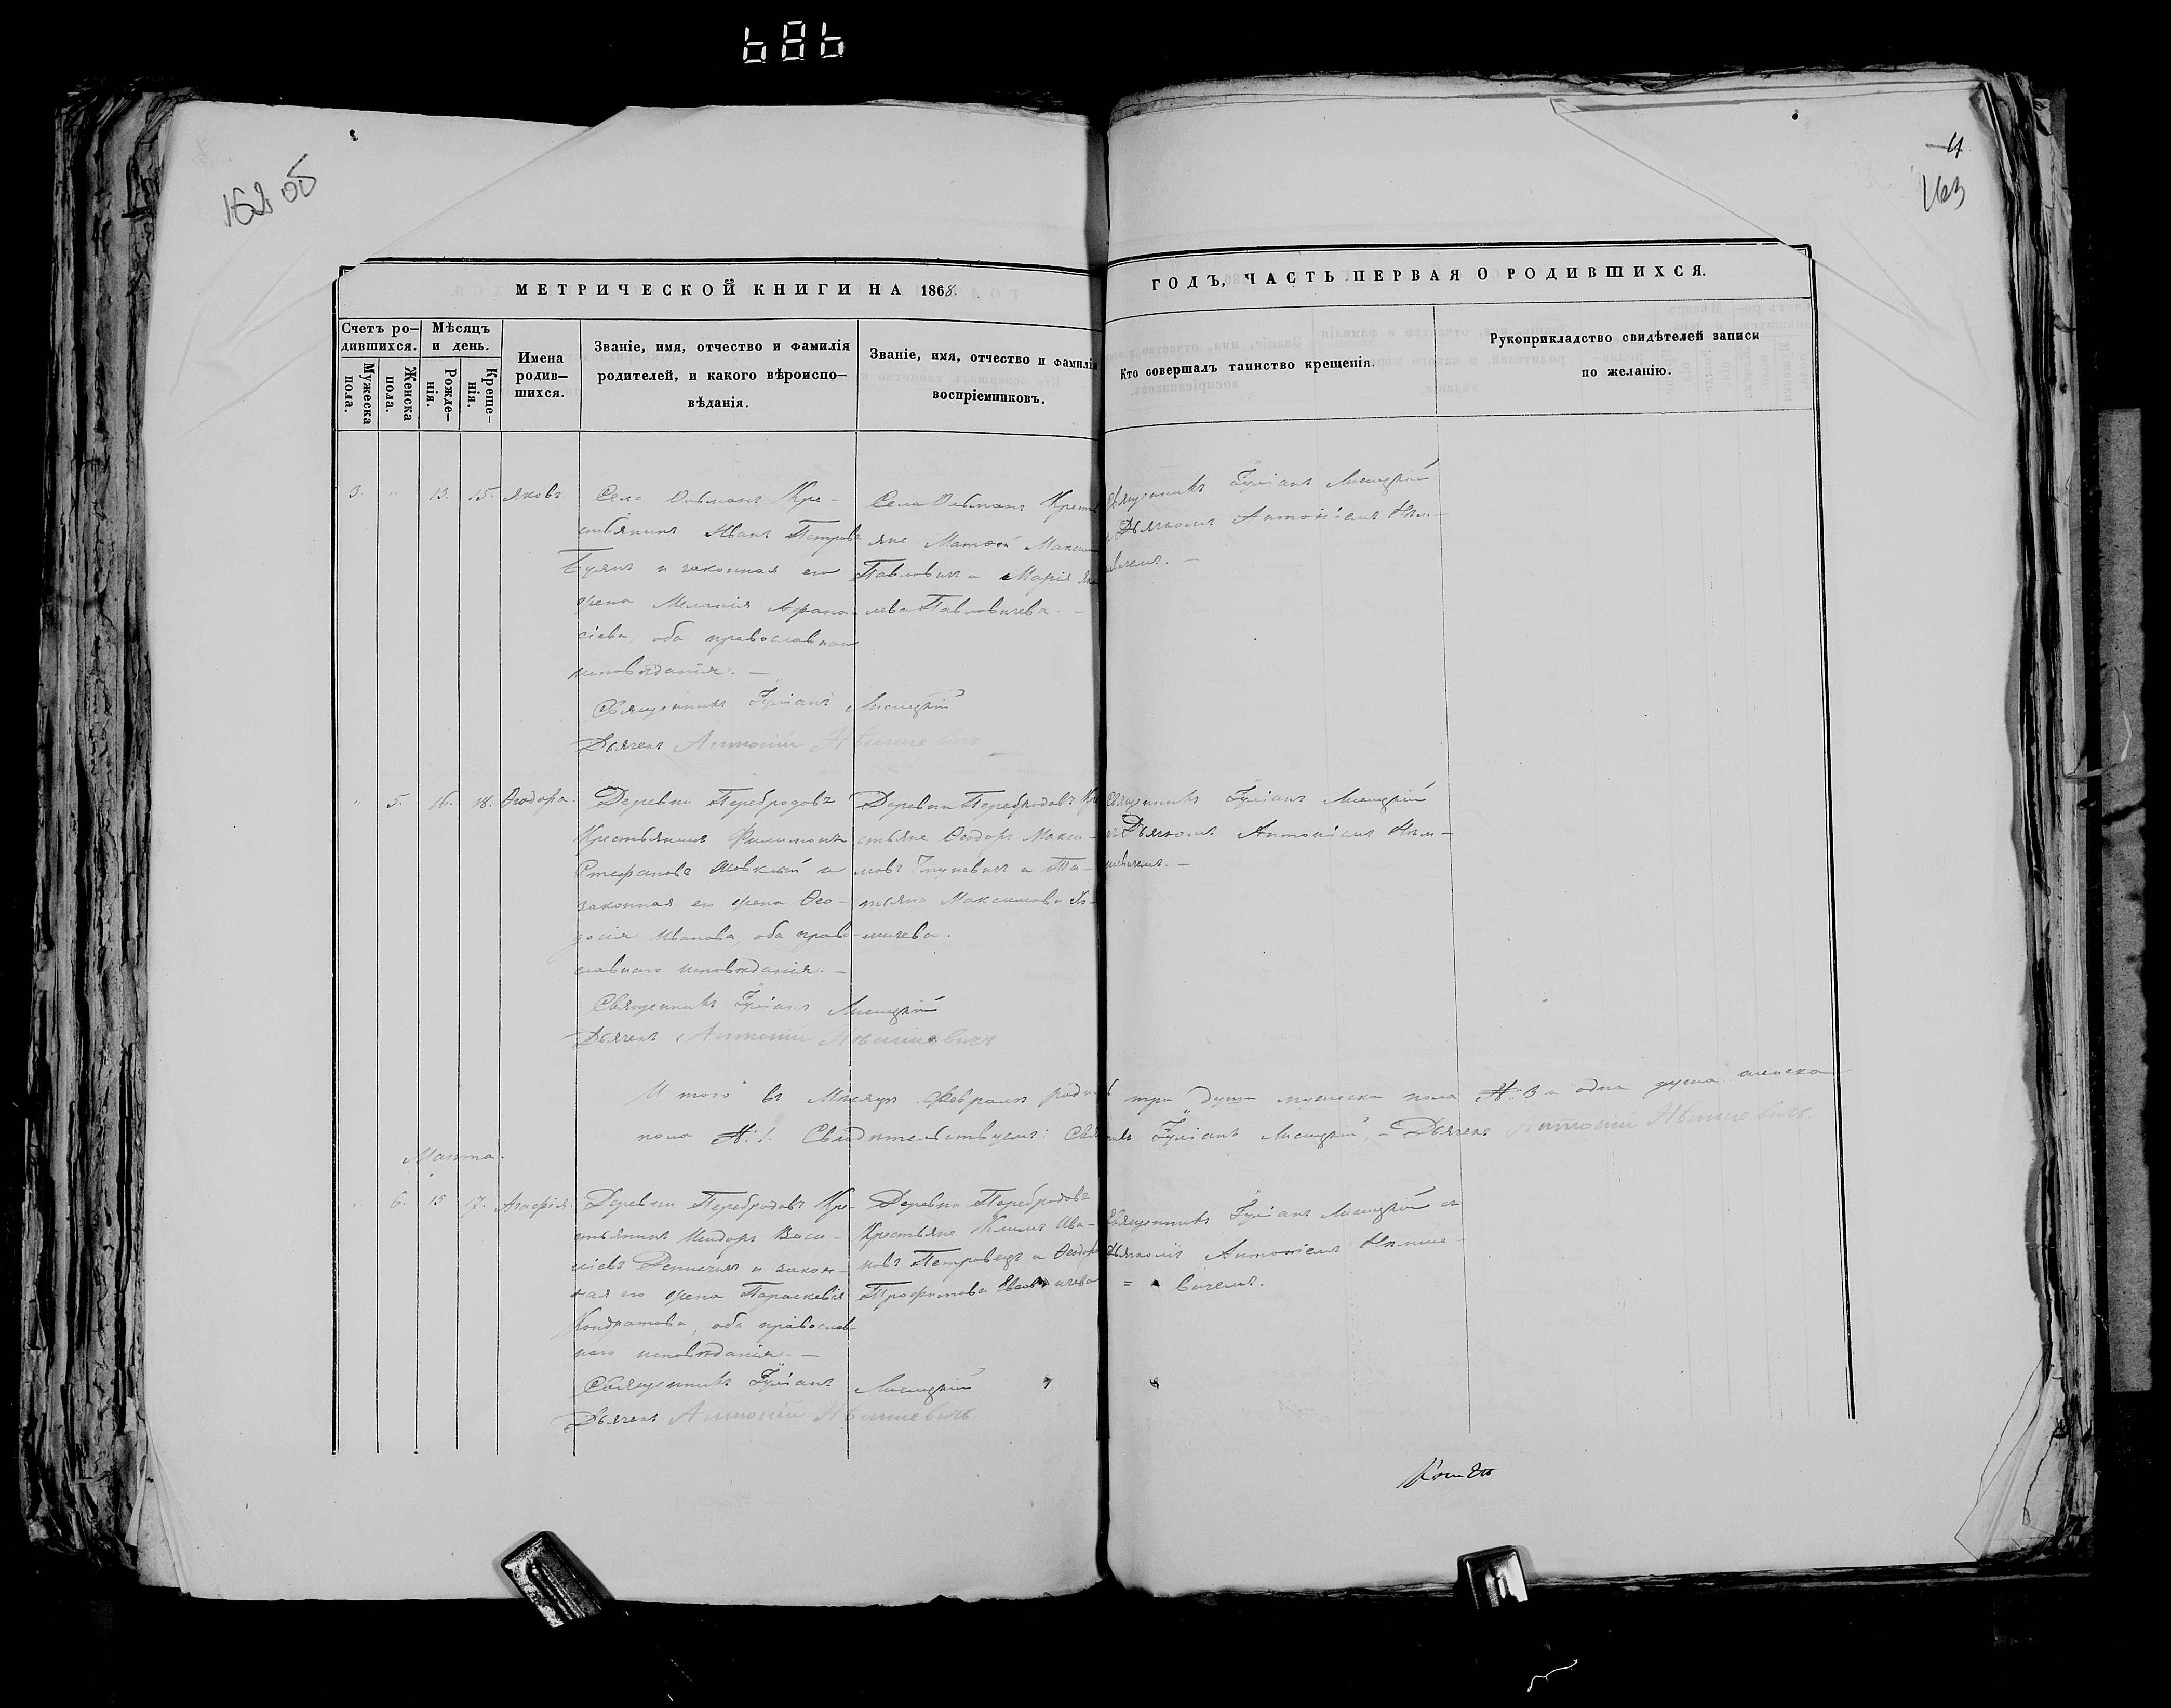 686
162 об
4
163
МЕТРИЧЕСКОЙ КНИГИ НА 1868.
ГОДЪ, ЧАСТЬ ПЕРВАЯ О РОДИВШИХСЯ.
Счетъ ро-
дившихся.
Мужеска
пола.
Женска
пола.
Мѣсяцъ
и день.
Рожде-
нія.
Креще-
нія.
Имена
родив-
шихся.
Званіе, имя, отчество и фамилія
родителей, и какого вѣроиспо-
вѣданія.
Званіе, имя, отчество и фамилія
воспріемниковъ.
Кто совершалъ таинство крещенія.
Рукоприкладство свидѣтелей записи
по желанію.
3. " 13. 15. Яковъ.
Села Ольманъ Кре-
стьянинъ Иванъ Петровъ
и законная его
жена Меланія Афана-
сіева, оба православнаго
исповѣданія. —
Священникъ Іуліанъ Лисицкій
Дьячекъ Антоній
Села Ольманъ Кресть
яне Матѳей Максим
Павловичъ и Марія Яко
лева Павловичева. —
Священникъ Іуліанъ Лисицкій
Дьячкомъ Антоніемъ
вичемъ. —
" 5. 16. 18. Ѳеодора.
Деревни Перебродовъ
Крестьянинъ Филимонъ
Стефановъ и
законная его жена Ѳео-
досія Иванова, оба право-
славнаго исповѣданія. —
Священникъ Іуліанъ Лисицкій
Дьячекъ Антоній
Деревни Перебродовъ Кре
стьяне Ѳеодоръ Макси-
мовъ и Та-
тіана Максимова
мичева.
Священникъ Іуліанъ Лисицкій
Дьячкомъ Антоніемъ
вичемъ. —
И того въ Мѣсяцѣ Февралѣ родил три души мужеска пола № 3 и одна душа женска
пола № 1. Свидѣтельствуемъ: Священникъ Іуліанъ Лисицкій, — Дьячекъ Антоній
Марта.
" 6. 15 17. Агафія.
Деревни Перебродовъ Кре-
стьянинъ Исидоръ Васи-
ліевъ и закон-
ная его жена Параскевія
Кондратова, оба православ-
наго исповѣданія. —
Священникъ Іуліанъ Лисицкій
Дьячекъ Антоній
Деревни Перебродовъ
Крестьяне Климъ Ива-
новъ Петровецъ и Ѳеодора
Трофимова
Священникъ Іуліанъ Лисицкій съ
Дьячкомъ Антоніемъ
= вичемъ.